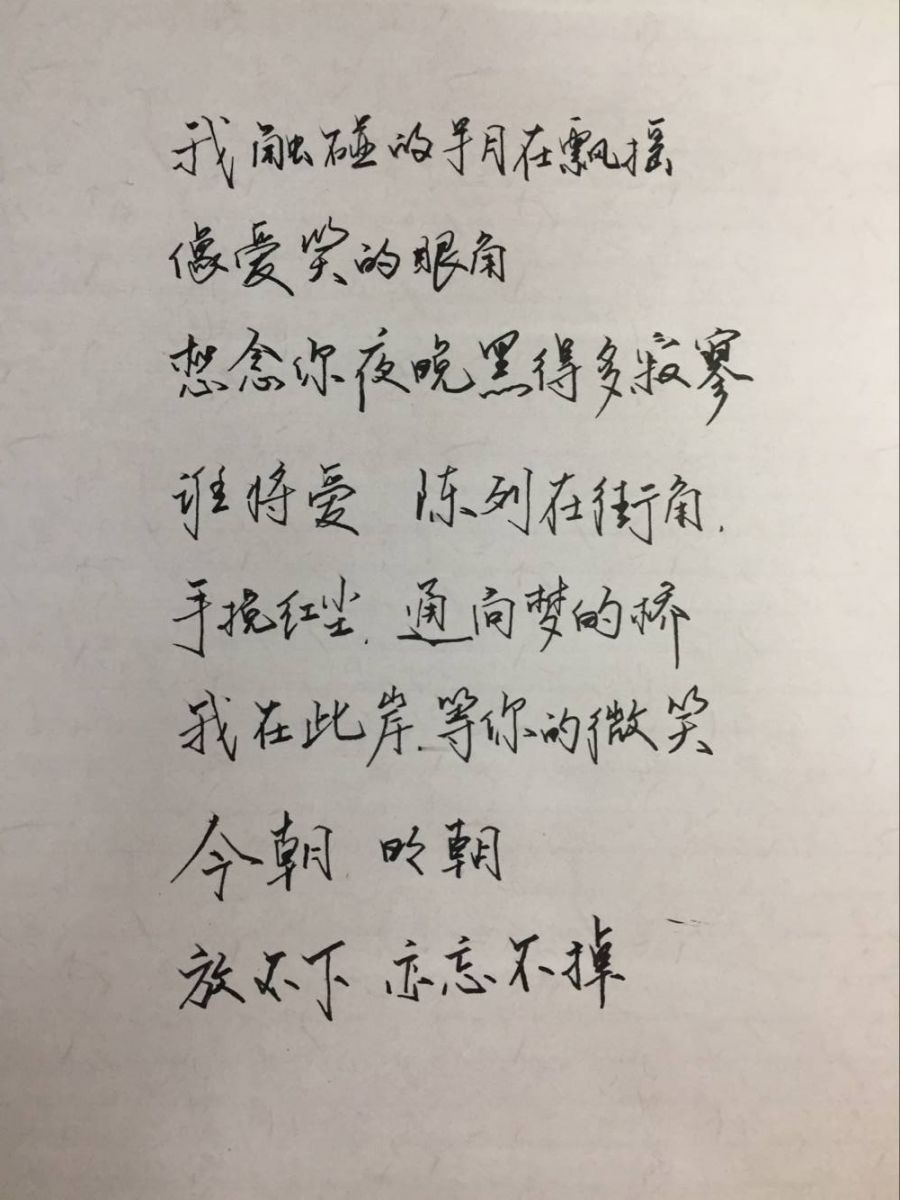 我触碰的半月在飘摇
像爱笑的眼角
想念你夜晚黑得多寂寥
谁将爱 陈列在街角.
手挽红尘.通向梦的桥
我在此岸.等你的微笑
今朝.明朝
放不下 亦忘不掉